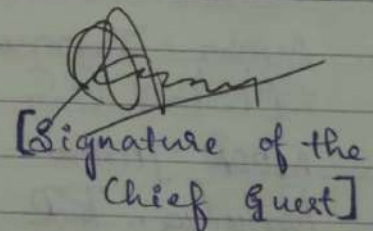 [Signature of the
Chief Guest]